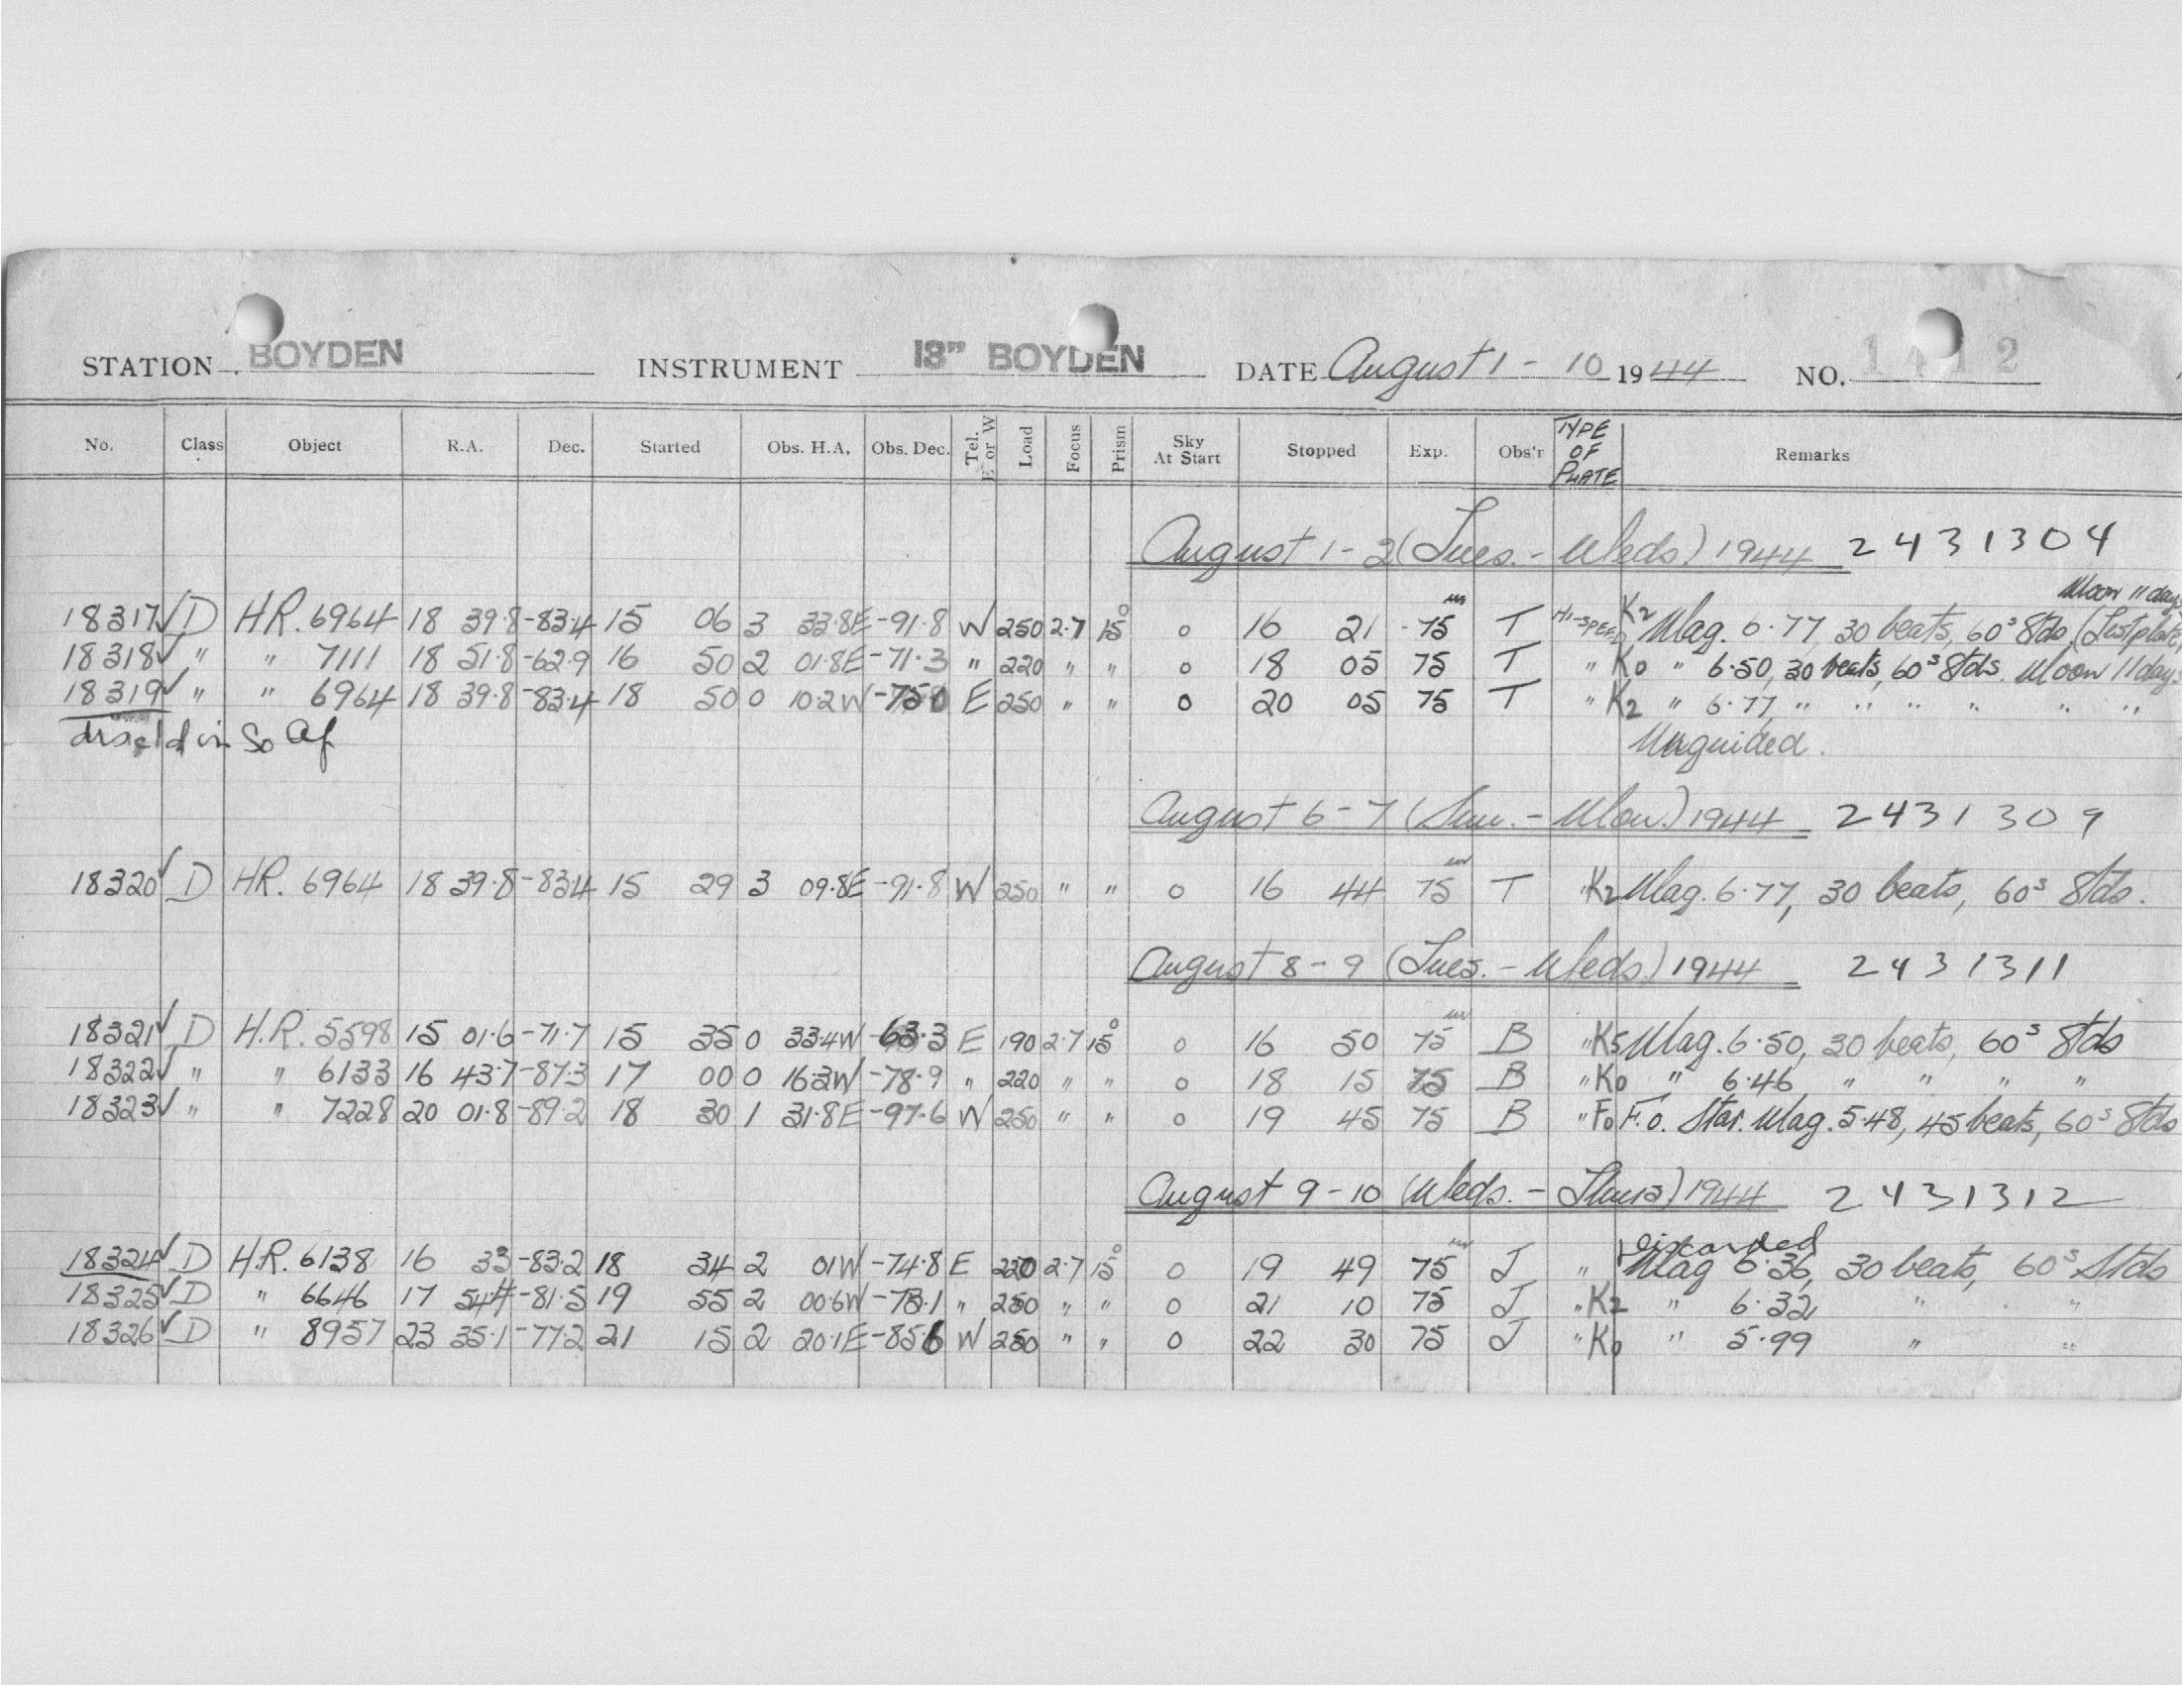 STATION BOYDEN INSTRUMENT 13" BOYDEN DATE August 1 - 10 1944 NO. 1412
No. Class Object R.A. Dec. Started Obs. H.A. Obs. Dec. Tel. E or W Load Focus Prism Sky At Start Stopped Exp. Obs'r TYPE OF PLATE Remarks
August 1-2 (Tues. - Weds) 1944 2431304
Moon 11 days
18317 ✓ D H.R. 6964 18 39.8 -83.4 15 06 3 33.8E -91.8 W 250 2.7 15° 0 16 21 75m T HI-SPEED K2 Mag. 6.77, 30 beats, 60s Stds. (Test plate)
18318 ✓ " " 7111 18 51.8 -62.9 16 50 2 01.8E -71.3 " 220 " " 0 18 05 75 T " K0 " 6.50, 30 beats, 60s Stds. Moon 11 days
18319 ✓ " " 6964 18 39.8 -83.4 18 50 0 10.2W -75.0 E 250 " " 0 20 05 75 T " K2 " 6.77, " " " " " "
discd in So Af Unguided.
August 6-7 (Sun. - Mon.) 1944 2431309
18320 ✓ D HR. 6964 18 39.8 -83.4 15 29 3 09.8E -91.8 W 250 " " 0 16 44 75m T " K2 Mag. 6.77, 30 beats, 60s Stds.
August 8-9 (Tues. - Weds.) 1944 2431311
18321 ✓ D H.R. 5598 15 01.6 -71.7 15 35 0 33.4W -63.3 E 190 2.7 15° 0 16 50 75m B " K5 Mag. 6.50, 30 beats, 60s Stds
18322 ✓ " " 6133 16 43.7 -87.3 17 00 0 16.3W -78.9 " 220 " " 0 18 15 75 B " K0 " 6.46 " " " "
18323 ✓ " " 7228 20 01.8 -89.2 18 30 1 31.8E -97.6 W 250 " " 0 19 45 75 B " F0 F.0. Star. Mag. 5.48, 45 beats, 60s Stds
August 9-10 (Weds. - Thurs) 1944 2431312
Discarded
18324 ✓ D H.R. 6138 16 33 -83.2 18 34 2 01W -74.8 E 220 2.7 15° 0 19 49 75m J " Mag 6.36, 30 beats, 60s Stds
18325 ✓ D " 6646 17 54.4 -81.5 19 55 2 00.6W -73.1 " 250 " " 0 21 10 75 J " K2 " 6.32, " "
18326 ✓ D " 8957 23 35.1 -77.2 21 15 2 20.1E -85.6 W 250 " " 0 22 30 75 J " K0 " 5.99 " "